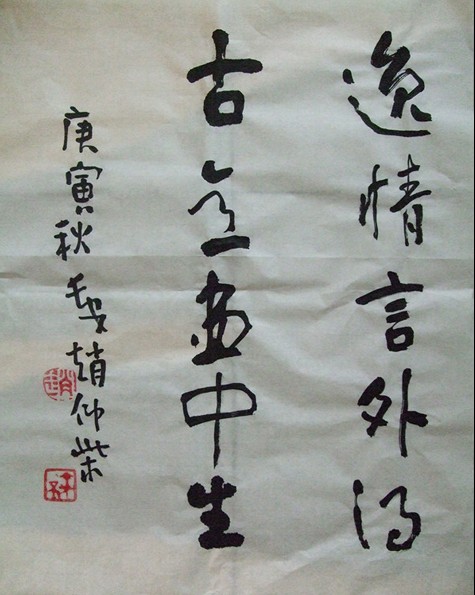 逸情言外得
古意画中生
庚寅秋 赵仰柴